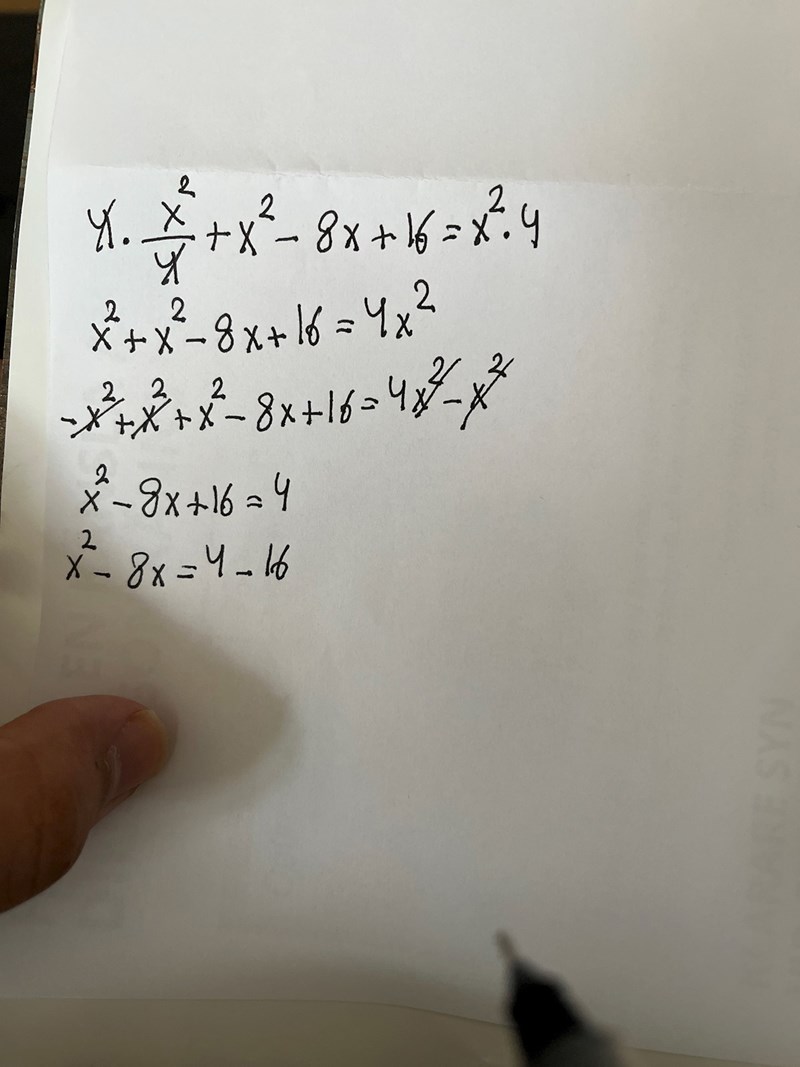 4. x²/4 + x² - 8x + 16 = x² . 4
x² + x² - 8x + 16 = 4x²
-x² + x² + x² - 8x + 16 = 4x² - x²
x² - 8x + 16 = 4
x² - 8x = 4 - 16